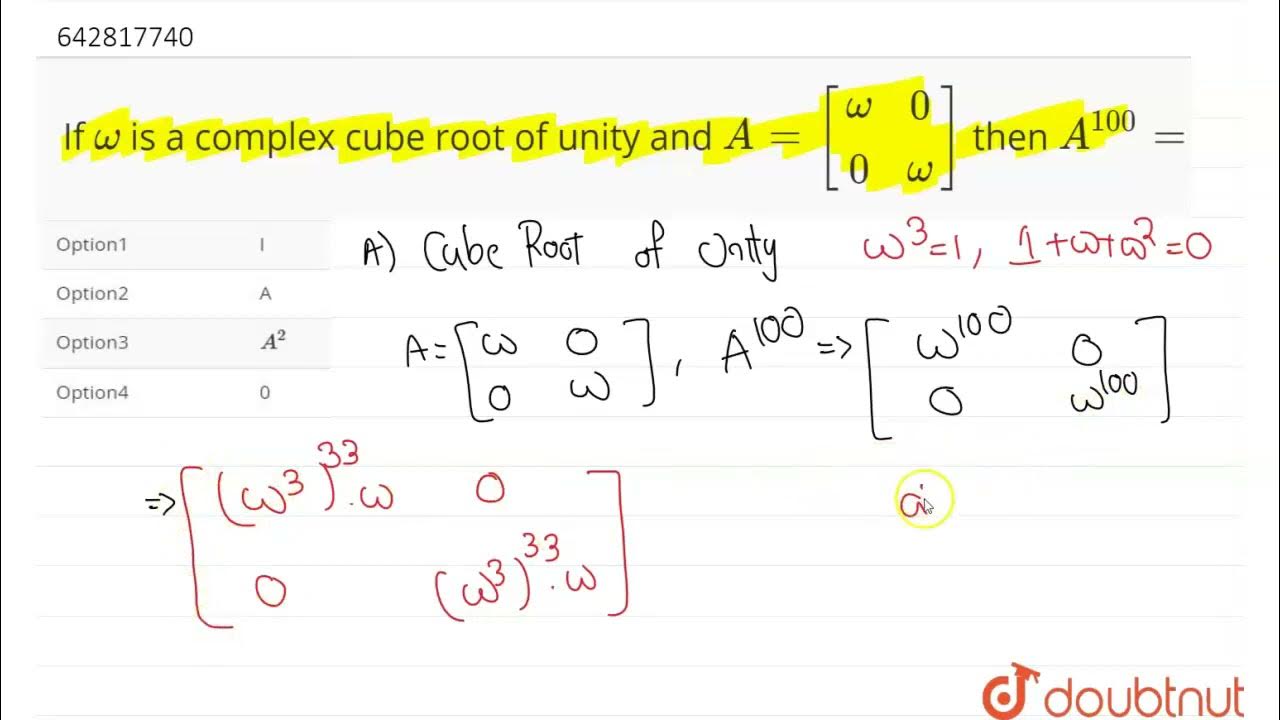 642817740
If ω is a complex cube root of unity and A = [ω 0; 0 ω] then A^100 =
Option1 I
Option2 A
Option3 A²
Option4 0
A) Cube Root of Unity ω³=1, 1+ω+ω²=0
A = [ω 0; 0 ω], A^100 => [ω^100 0; 0 ω^100]
=> [(ω³)^33 . ω 0; 0 (ω³)^33 . ω]
doubtnut